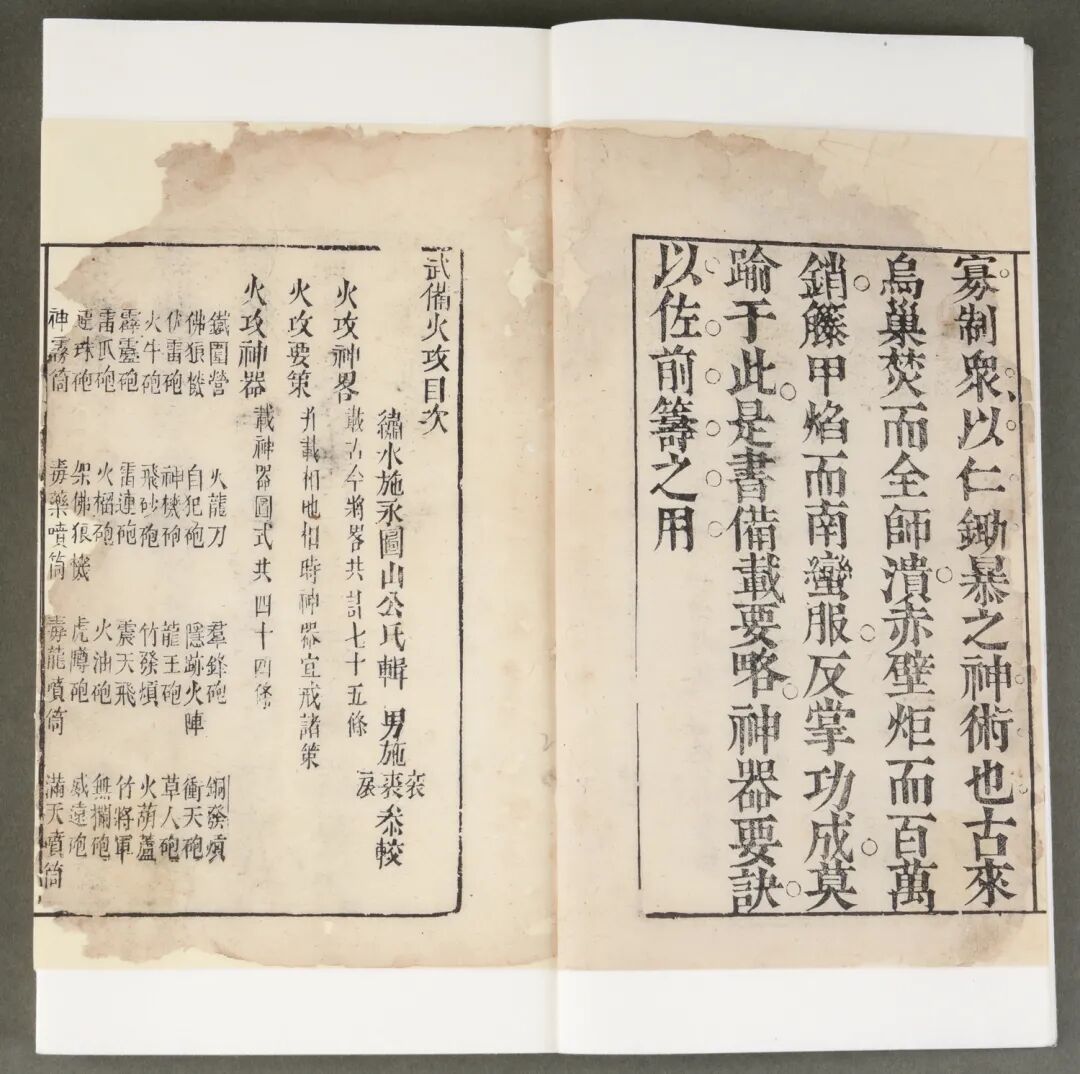 寡制衆以仁鋤暴之神術也古來
烏巢焚而全師潰赤壁炬而百萬
銷籐甲焰而南蠻服反掌功成莫
踰于此是書備載要略神器要訣
以佐前籌之用
武備火攻目次
繡水施永圖山公氏輯 男施 裘 参較
火攻神畧 載古今將畧共計七十五條
火攻要策 并載相地相時神器宣戒諸策
火攻神器 載神器圖式共四十四條
鐵圍營 火龍刀 羣鋒砲 銅發熕
佛狼機 自犯砲 隱跡火陣 衝天砲
伏雷砲 神機砲 龍王砲 草人砲
火牛砲 飛砂砲 竹發熕 火葫蘆
霹靂砲 雷連砲 震天飛 竹將軍
雷爪砲 火榴砲 火油砲 無攔砲
連珠砲 架佛狼機 虎蹲砲 威遠砲
神霧筒 毒藥噴筒 毒龍噴筒 滿天噴筒